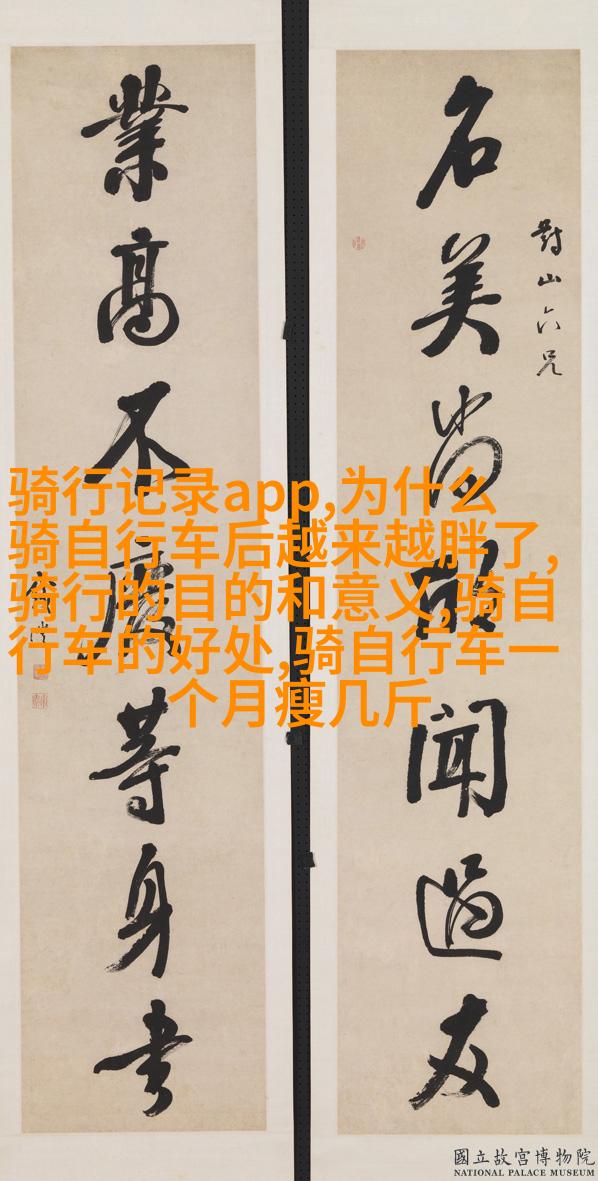 名美尚聞過友
對山六兄
業高不廢等身書
骑行记录app,为什么
骑自行车后越来越胖了,
骑行的目的和意义,骑自
行车的好处,骑自行车一
个月瘦几斤
國立故宮博物院
NATIONAL PALACE MUSEUM